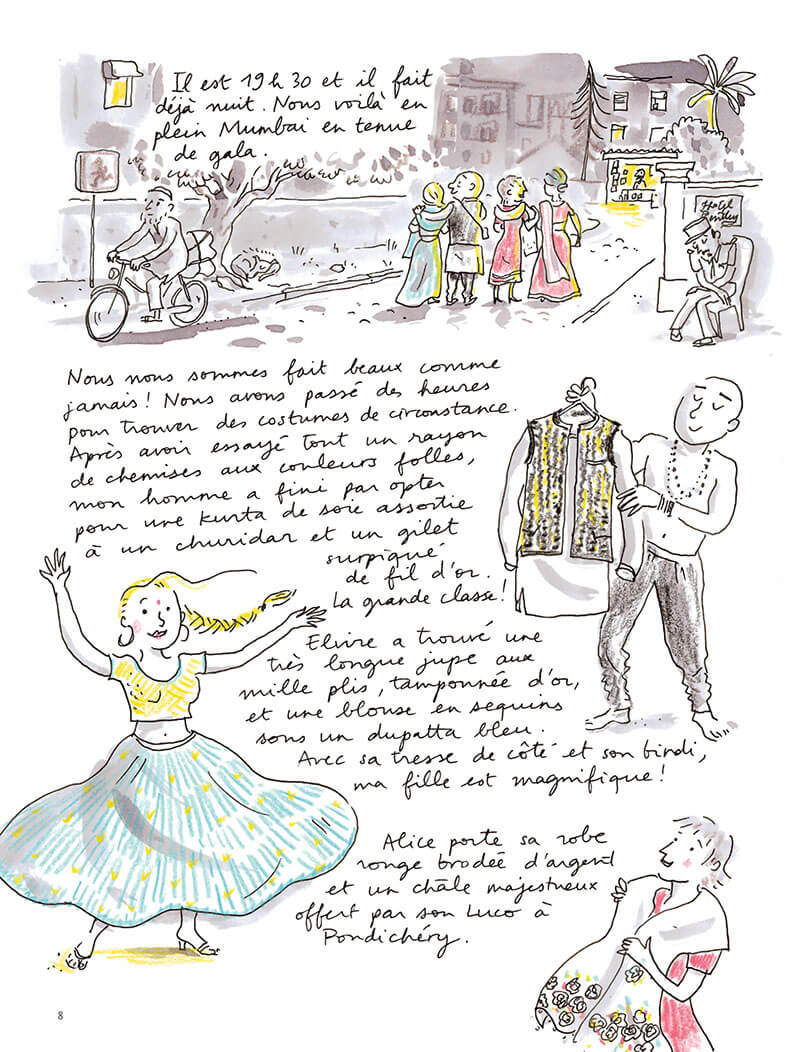 Il est 19 h 30 et il fait
déjà nuit. Nous voilà en
plein Mumbai en tenue
de gala.
Hotel
Bentley
Nous nous sommes fait beaux comme
jamais ! Nous avons passé des heures
pour trouver des costumes de circonstance.
Après avoir essayé tout un rayon
de chemises aux couleurs folles,
mon homme a fini par opter
pour une kurta de soie assortie
à un churidar et un gilet
surpiqué
de fil d'or.
La grande classe !
Elvire a trouvé une
très longue jupe aux
mille plis, tamponnée d'or,
et une blouse en sequins
sous un dupatta bleu.
Avec sa tresse de côté et son bindi,
ma fille est magnifique !
Alice porte sa robe
rouge brodée d'argent
et un châle majestueux
offert par son Luco à
Pondichéry.
8